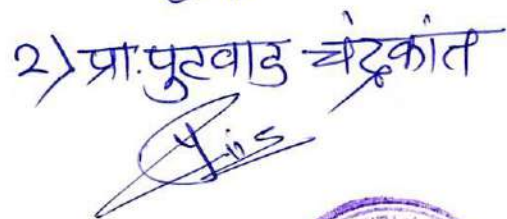 2) प्रा.पुटवाड चंद्रकांत